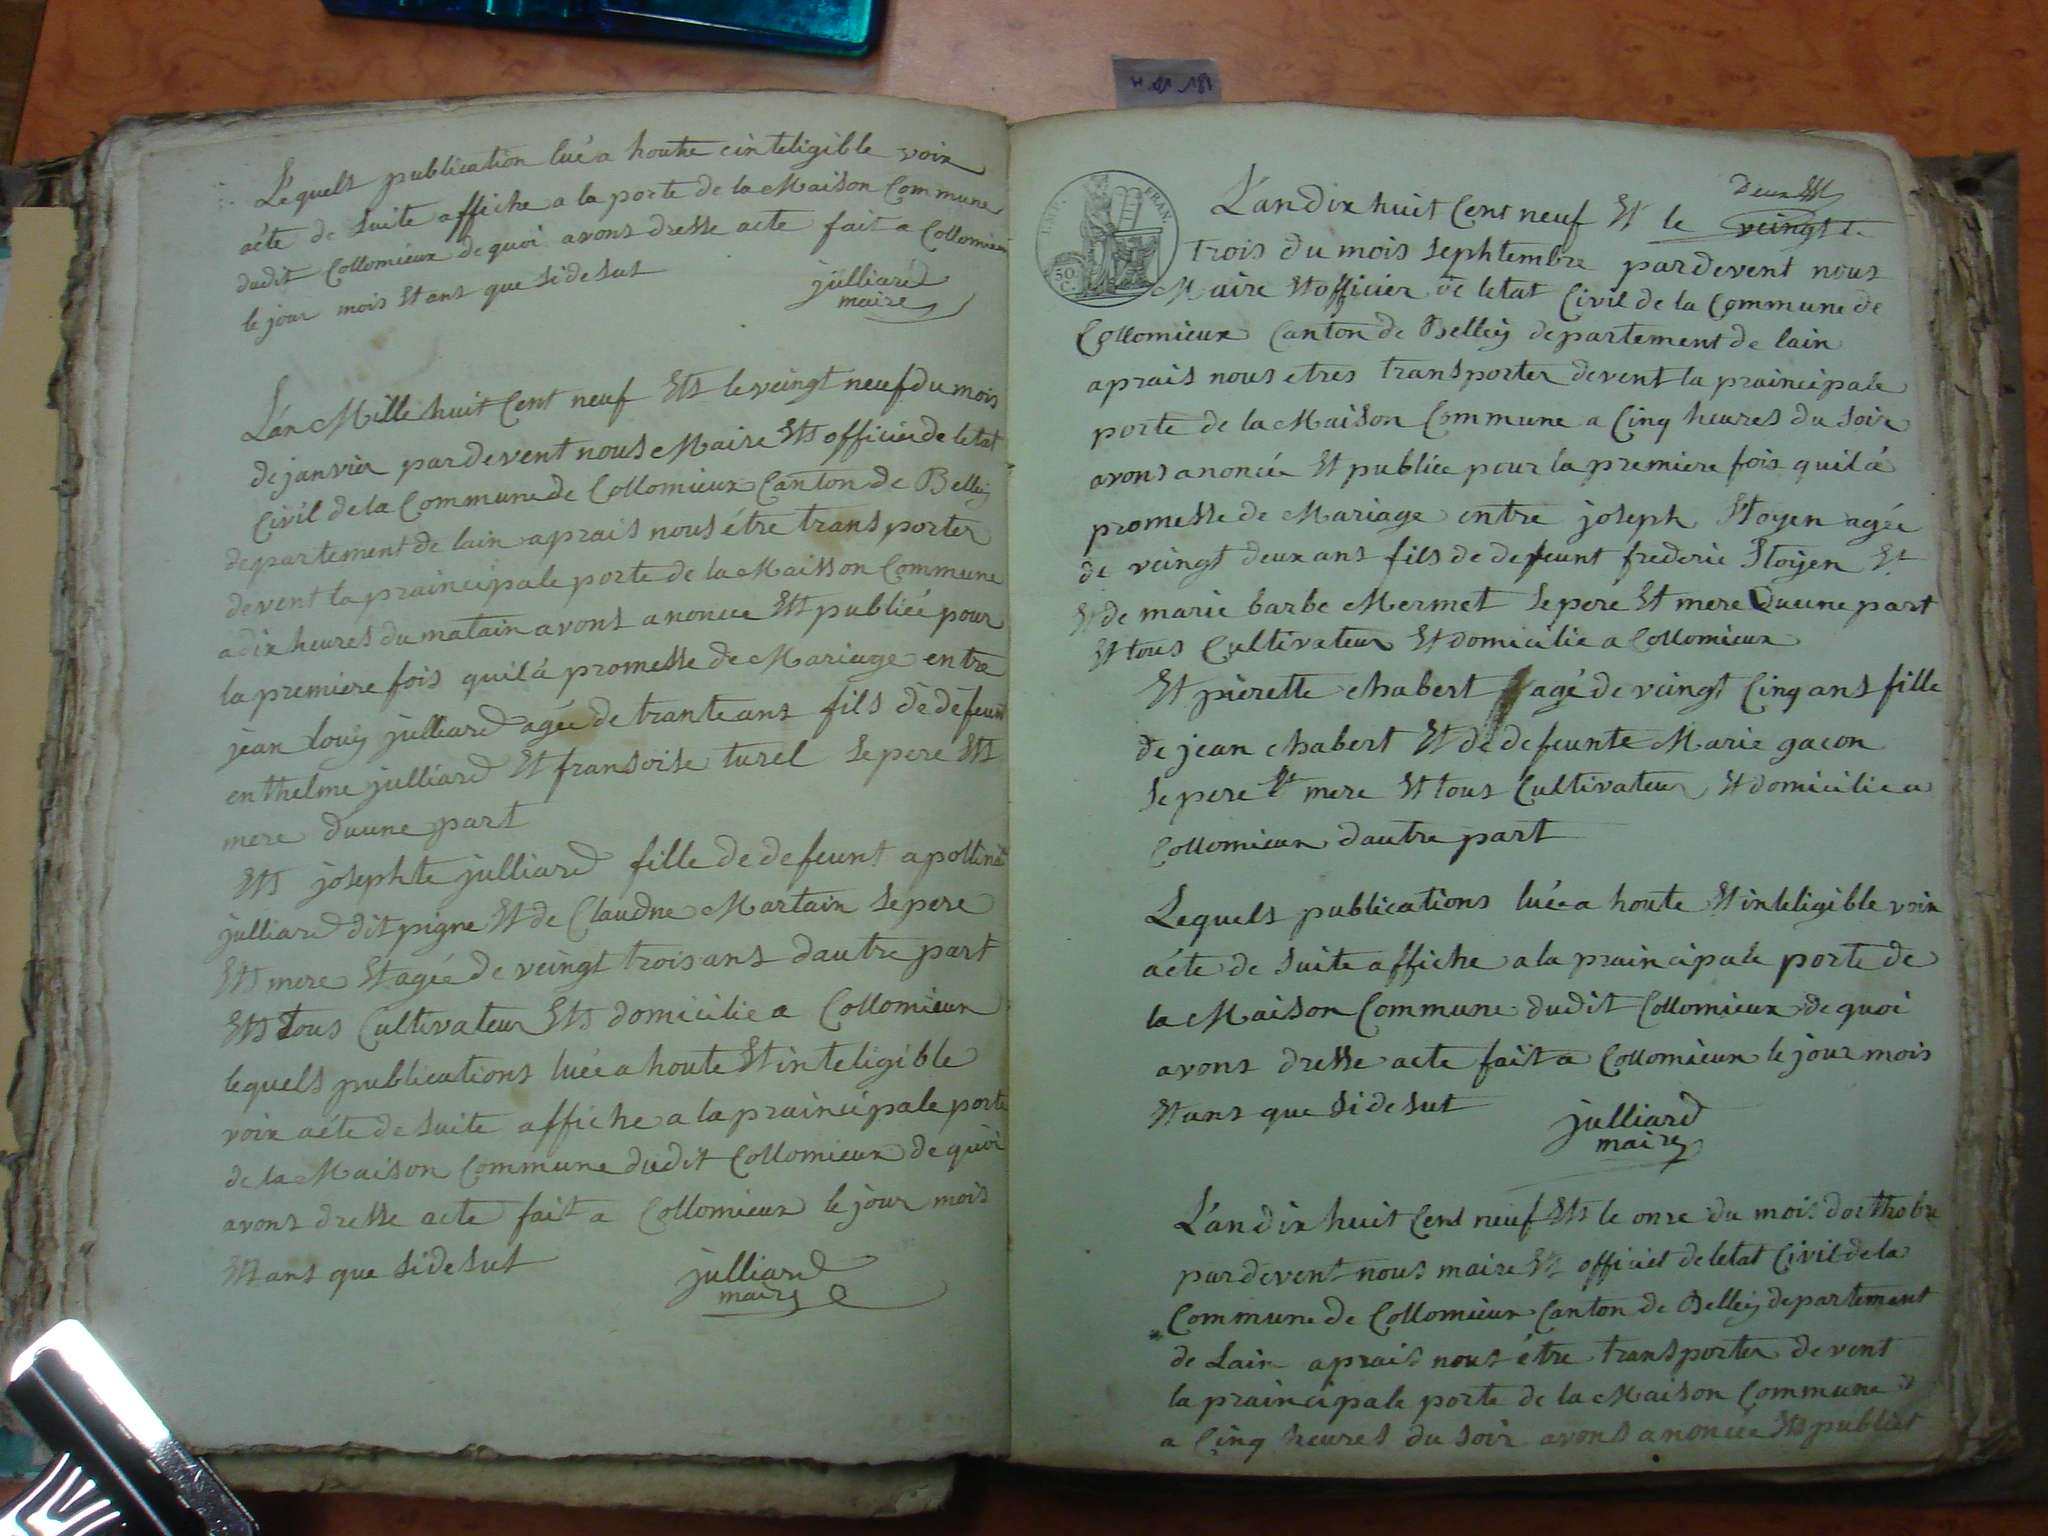 Lequels publication lué a houtte einteligible voix
aéte de suite affiche a la porte de la Maison Commune
dudit Collomieux de quoi avons dresse acte fait a Collomieux
le jour mois Et ans que si de sut
julliard
maire
L'an Mille huit Cent neuf Ets le veingt neuf du mois
de janvier par devent nous Maire Ets officier de letat
Civil de la Commune de Collomieux Canton de Belleÿ
departement de lain aprais nous étre transporter
devent la praincipale porte de la Maisson Commune
a dix heures du matain avons anoncee Ets publiéé pour
la premiere fois quil á promesse de Mariage entre
jean louis julliard agée de trante ans fils de defeunt
enthelme julliard Et fransoise turel se pere Ets
mere d'aune part
Ets josephte julliard fille de defeunt apollinai
julliard dit pigne Et de Claudne Martain se pere
Ets mere Et agée de veingt trois ans d'autre part
Ets tous Cultivateur Ets domicilie a Collomieux
lequels publications luée a houte Et inteligible
voix aéte de suite affiche a la praincipale porte
de la Maison Commune dudit Collomieux de quoi
avons dresse acte fait a Collomieux le jour mois
Ets ans que si de sut
julliard
maire
IMP. FRAN.
50 C.
Deux Ets
L'an dix huit Cent neuf Et le veingtte
trois du mois sephtembre par devent nous
Maire Et officier de letat Civil de la Commune de
Collomieux Canton de Belleÿ departement de lain
aprais nous etres transporter devent la praincipale
porte de la Maison Commune a Cinq heures du soir
avons anoncée Et publiée pour la premiere fois quil á
promesse de Mariage entre joseph Stoyen agée
de veingt deux ans fils de defeunt frederic Stoyen Et
Et de marie barbe Mermet se pere Et mere D'aune part
Et tous Cultivateur Et domicilie a Collomieux
Et pierette chabert agé de veingt Cinq ans fille
de jean chabert Et de defeunte Marie gacon
se pere Et mere Et tous Cultivateur Et domicilie a
Collomieux dautre part
Lequels publications luée a houte Et inteligible voix
aéte de suite affiche a la praincipale porte de
la Maison Commune dudit Collomieux de quoi
avons dresse acte fait a Collomieux le jour mois
Et ans que si de sut
julliard
maire
L'an dix huit Cent neuf Ets le onze du mois docthobre
par devent nous maire Et officiet de letat Civil de la
Commune de Collomieux Canton de Belleÿ departement
de Lain aprais nous étre transporter devent
la praincipale porte de la Maison Commune
a Cinq heures du soir avons anoncée Ets publiet